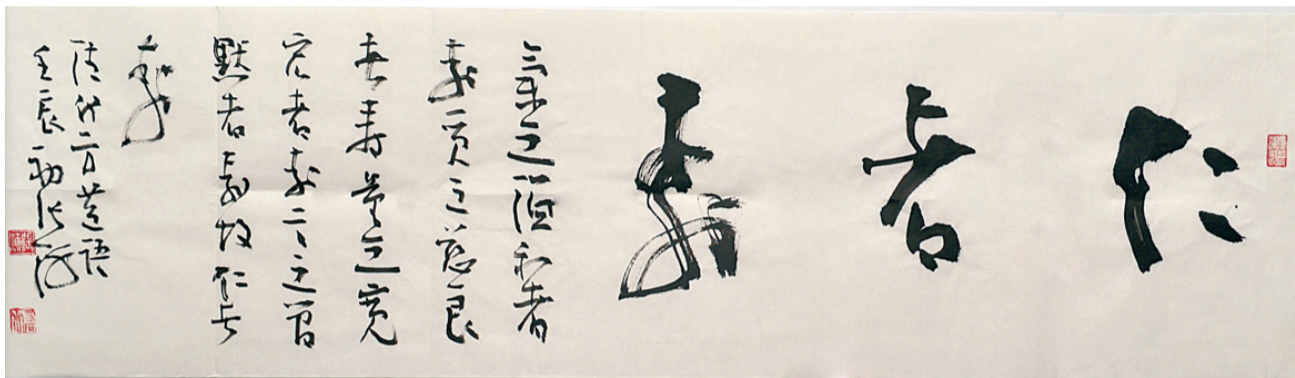 仁者寿
氣之温和者
寿质之慈良
者寿量之宽
宏者寿言之简
默者寿故仁者
寿
清代方苞语
壬辰初